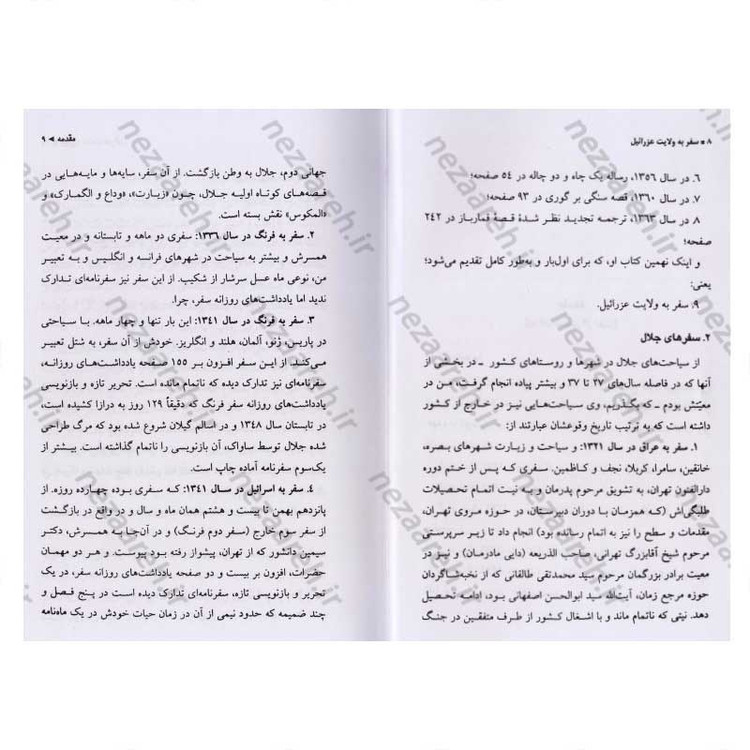 ۸ ▪ سفر به ولایت عزرائیل
۶. در سال ۱۳۵۶، رساله یک چاه و دو چاله در ۵۴ صفحه؛
۷. در سال ۱۳۶۰، قصه سنگی بر گوری در ۹۳ صفحه؛
۸. در سال ۱۳۶۳، ترجمه تجدید نظر شدهٔ قصهٔ قمارباز در ۲۴۲
صفحه؛
و اینک نهمین کتاب او، که برای اول‌بار و به‌طور کامل تقدیم می‌شود؛
یعنی:
۹. سفر به ولایت عزرائیل.
۲. سفرهای جلال
از سیاحت‌های جلال در شهرها و روستاهای کشور ـ در بخشی از
آنها که در فاصله سال‌های ۲۷ تا ۳۷ و بیشتر پیاده انجام گرفت، من در
معیتش بودم ـ که بگذریم، وی سیاحت‌هایی نیز در خارج از کشور
داشته است که به ترتیب تاریخ وقوعشان عبارتند از:
۱. سفر به عراق در سال ۱۳۲۱: و سیاحت و زیارت شهرهای بصره،
خانقین، سامرا، کربلا، نجف و کاظمین. سفری که پس از ختم دوره
دارالفنون تهران، به تشویق مرحوم پدرمان و به نیت اتمام تحصیلات
طلبگی‌اش (که همزمان با دوران دبیرستان، در حوزه مروی تهران،
مقدمات و سطح را نیز به اتمام رسانده بود) انجام داد تا زیر سرپرستی
مرحوم شیخ آقابزرگ تهرانی، صاحب الذریعه (دایی مادرمان) و نیز در
معیت برادر بزرگمان مرحوم سید محمدتقی طالقانی که از نخبه‌شاگردان
حوزه مرجع زمان، آیت‌الله سید ابوالحسن اصفهانی بود، ادامه تحصیل
دهد. نیتی که ناتمام ماند و با اشغال کشور از طرف متفقین در جنگ
مقدمه ◄ ۹
جهانی دوم، جلال به وطن بازگشت. از آن سفر، سایه‌ها و مایه‌هایی در
قصه‌های کوتاه اولیه جلال، چون «زیارت»، «وداع و الگمارک» و
«المکوس» نقش بسته است.
۲. سفر به فرنگ در سال ۱۳۳۶: سفری دو ماهه و تابستانه و در معیت
همسرش و بیشتر به سیاحت در شهرهای فرانسه و انگلیس و به تعبیر
من، نوعی ماه عسل سرشار از شکیب. از این سفر نیز سفرنامه‌ای تدارک
ندید اما یادداشت‌های روزانه سفر، چرا.
۳. سفر به فرنگ در سال ۱۳۴۱: این بار تنها و چهار ماهه. با سیاحتی
در پاریس، ژنو، آلمان، هلند و انگلریز. خودش از آن سفر، به شتل تعبیر
می‌کند. از این سفر افزون بر ۱۵۵ صفحه یادداشت‌های روزانه،
سفرنامه‌ای نیز تدارک دیده که ناتمام مانده است. تحریر تازه و بازنویسی
یادداشت‌های روزانه سفر فرنگ که دقیقاً ۱۲۹ روز به درازا کشیده است،
در تابستان سال ۱۳۴۸ و در اسالم گیلان شروع شده بود که مرگ طراحی
شده جلال توسط ساواک، آن بازنویسی را ناتمام گذاشته است. بیشتر از
یک‌سوم سفرنامه آماده چاپ است.
۴. سفر به اسرائیل در سال ۱۳۴۱: که سفری بوده چهارده روزه. از
پانزدهم بهمن تا بیست و هشتم همان ماه و سال و در واقع در بازگشت
از سفر سوم خارج (سفر دوم فرنگ) و در آن‌جا به همسرش، دکتر
سیمین دانشور که از تهران، پیشواز رفته بود پیوست. و هر دو مهمان
حضرات، افزون بر بیست و دو صفحه یادداشت‌های روزانه سفر، در یک
تحریر و بازنویسی تازه، سفرنامه‌ای تدارک دیده است در پنج فصل و
چند ضمیمه که حدود نیمی از آن در زمان حیات خودش در یک ماه‌نامه
nezaareh.ir